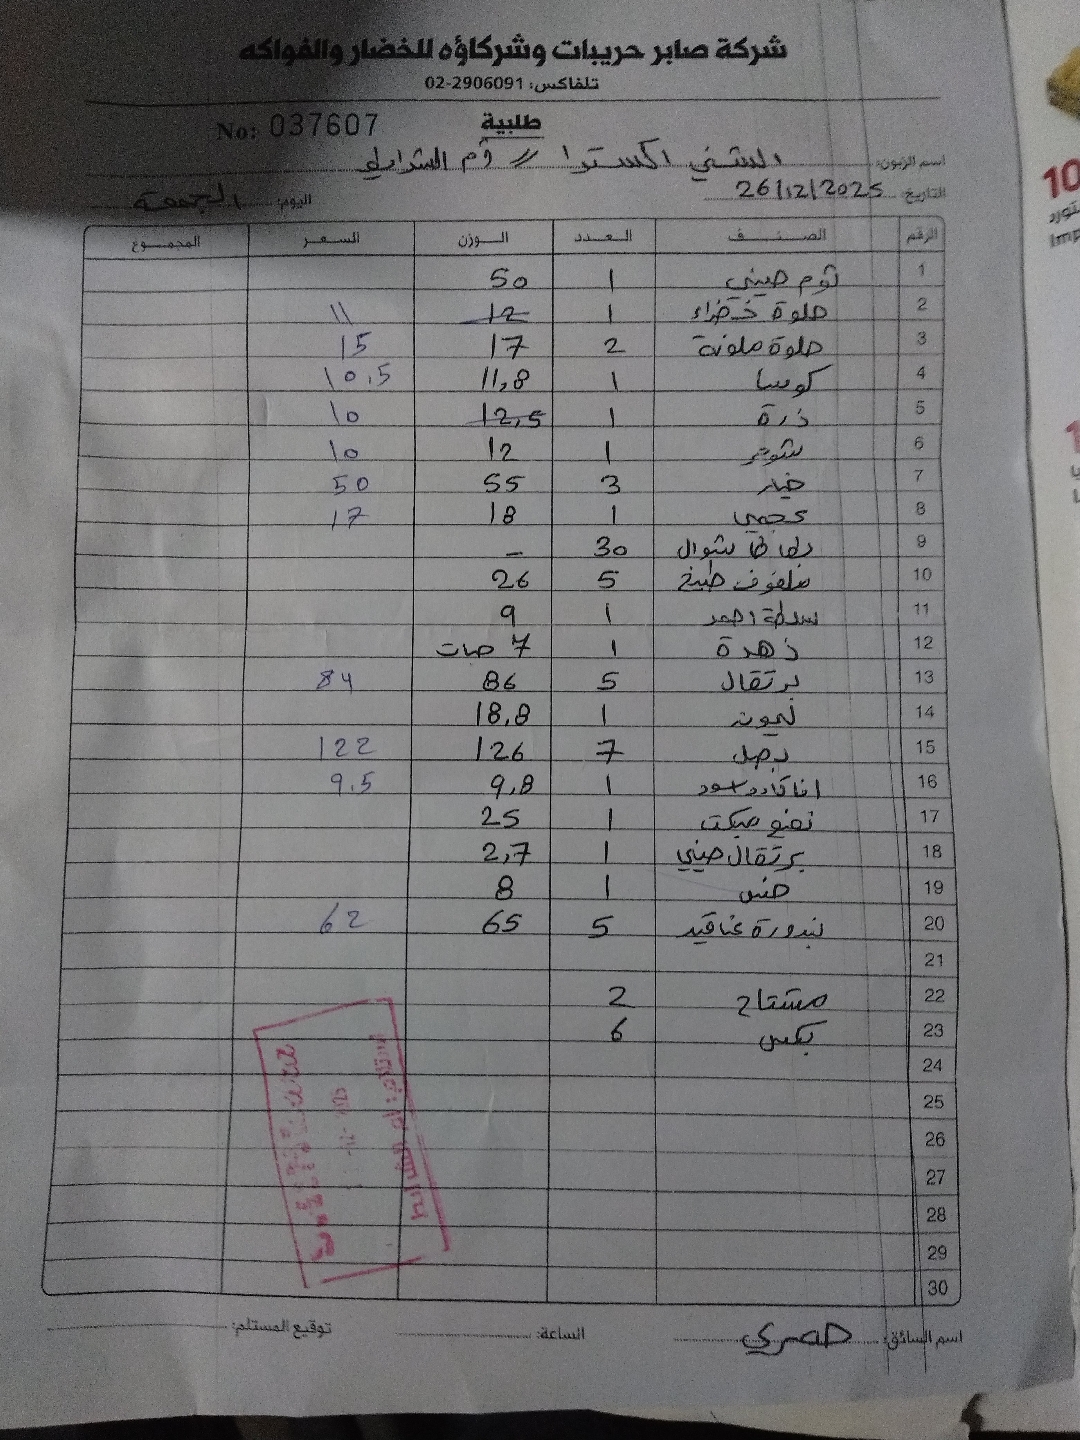 شركة صابر حريبات وشركاؤه للخضار والفواكه
تلفاكس: 02-2906091
طلبية
No: 037607
اسم الزبون: الشني اكسترا // ام الشرايط
التاريخ: 26/12/2025 اليوم: الجمعة
الرقم الصنف العدد الوزن السعر المجموع
1 ثوم صيني 1 50
2 حلوة خضراء 1 12 11
3 حلوة ملونة 2 17 15
4 كوسا 1 11,8 10.5
5 ذرة 1 12,5 10
6 شومر 1 12 10
7 خيار 3 55 50
8 عجمي 1 18 17
9 بطاطا شوال 30 -
10 ملفوف طبيخ 5 26
11 سلطة احمر 1 9
12 زهرة 1 7 حبات
13 برتقال 5 86 84
14 ليمون 1 18,8
15 بصل 7 126 122
16 افاكادو اسود 1 9,8 9.5
17 نعنع 1 25
18 برتقال صيني 1 2,7
19 خس 1 8
20 بندورة عناقيد 5 65 62
21
22 مشتاح 2
23 بكس 6
24
25
26
27
28
29
30
اسم السائق: الساعة: توقيع المستلم: